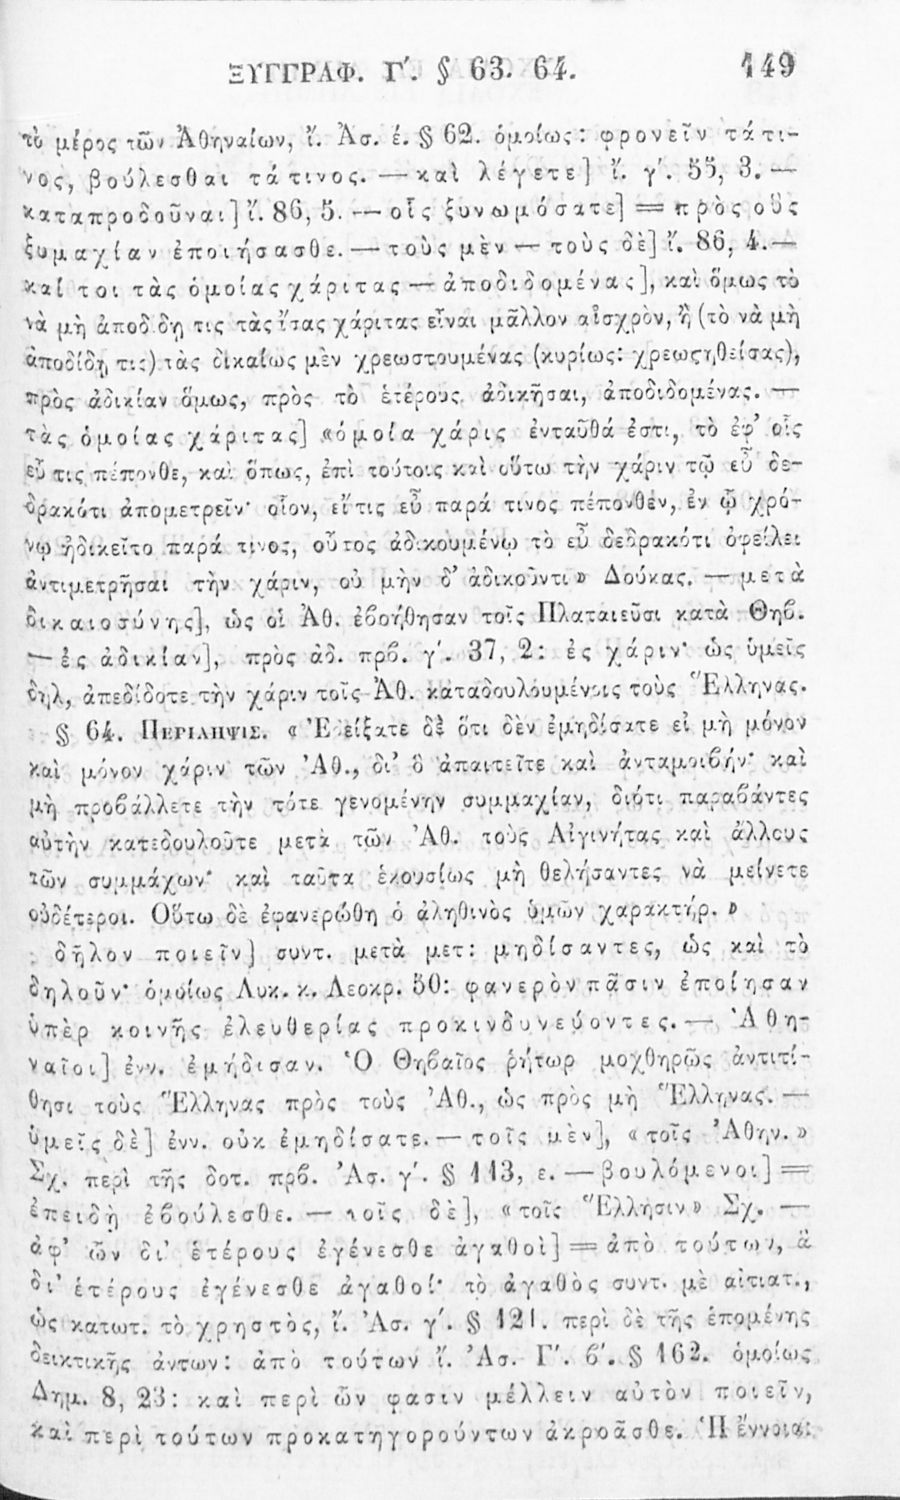 ΞΥΓΓΡΑΦ. Γ΄. § 63. 64. 149
τὸ μέρος τῶν Ἀθηναίων, ἴ. Ἀσ. έ. § 62. ὁμοίως: φρονεῖν τά τι-
νος, βούλεσθαι τά τινος. — καὶ λέγετε] ἴ. γ΄. 55, 3. —
καταπροδοῦναι] ἴ. 86, 5. — οἷς ξυνωμόσατε] = πρὸς οὓς
ξυμαχίαν ἐποιήσασθε. — τοὺς μὲν — τοὺς δὲ] ἴ. 86, 4. —
καί τοι τὰς ὁμοίας χάριτας — ἀποδιδομένας], καὶ ὅμως τὸ
νὰ μὴ ἀποδίδῃ τις τὰς ἴσας χάριτας εἶναι μᾶλλον αἰσχρὸν, ἢ (τὸ νὰ μὴ
ἀποδίδῃ τις) τὰς δικαίως μὲν χρεωστουμένας (κυρίως: χρεωςηθείσας),
πρὸς ἀδικίαν ὅμως, πρὸς τὸ ἑτέρους ἀδικῆσαι, ἀποδιδομένας. —
τὰς ὁμοίας χάριτας] «ὁμοία χάρις ἐνταῦθά ἐστι, τὸ ἐφ' οἷς
εὖ τις πέπονθε, καὶ ὅπως, ἐπὶ τούτοις καὶ οὕτω τὴν χάριν τῷ εὖ δε-
δρακότι ἀπομετρεῖν· οἷον, εἴ τις εὖ παρά τινος πέπονθεν, ἐν ᾧ χρό-
νῳ ἠδικεῖτο παρά τινος, οὗτος ἀδικουμένῳ τὸ εὖ δεδρακότι ὀφείλει
ἀντιμετρῆσαι τὴν χάριν, οὐ μὴν δ' ἀδικοῦντι» Δούκας. — μετὰ
δικαιοσύνης], ὡς οἱ Ἀθ. ἐβοήθησαν τοῖς Πλαταιεῦσι κατὰ Θηβ.
— ἐς ἀδικίαν], πρὸς ἀδ. πρβ. γ΄. 37, 2: ἐς χάριν· ὡς ὑμεῖς
δηλ, ἀπεδίδοτε τὴν χάριν τοῖς Ἀθ. καταδουλουμένοις τοὺς Ἕλληνας.
§ 64. Περίληψις. «Ἐδείξατε δὲ ὅτι δὲν ἐμηδίσατε εἰ μὴ μόνον
καὶ μόνον χάριν τῶν Ἀθ., δι' ὃ ἀπαιτεῖτε καὶ ἀνταμοιβήν· καὶ
μὴ προβάλλετε τὴν τότε γενομένην συμμαχίαν, διότι παραβάντες
αὐτὴν κατεδουλοῦτε μετὰ τῶν Ἀθ. τοὺς Αἰγινήτας καὶ ἄλλους
τῶν συμμάχων· καὶ ταῦτα ἑκουσίως μὴ θελήσαντες νὰ μείνετε
οὐδέτεροι. Οὕτω δὲ ἐφανερώθη ὁ ἀληθινὸς ὑμῶν χαρακτήρ.»
δῆλον ποιεῖν] συντ. μετὰ μετ: μηδίσαντες, ὡς καὶ τὸ
δηλοῦν· ὁμοίως Λυκ. κ. Λεοκρ. 50: φανερὸν πᾶσιν ἐποίησαν
ὑπὲρ κοινῆς ἐλευθερίας προκινδυνεύοντες. — Ἀθη-
ναῖοι] ἐνν. ἐμήδισαν. Ὁ Θηβαῖος ῥήτωρ μοχθηρῶς ἀντιτί-
θησι τοὺς Ἕλληνας πρὸς τοὺς Ἀθ., ὡς πρὸς μὴ Ἕλληνας. —
ὑμεῖς δὲ] ἐνν. οὐκ ἐμηδίσατε. — τοῖς μὲν], «τοῖς Ἀθην.»
Σχ. περὶ τῆς δοτ. πρβ. Ἀσ. γ΄. § 113, ε. — βουλόμενοι] =
ἐπειδὴ ἐβούλεσθε. — τοῖς δὲ], «τοῖς Ἕλλησιν» Σχ. —
ἀφ' ὧν δι' ἑτέρους ἐγένεσθε ἀγαθοὶ] = ἀπὸ τούτων, ἃ
δι' ἑτέρους ἐγένεσθε ἀγαθοί· τὸ ἀγαθὸς συντ. μὲ αἰτιατ.,
ὡς κατωτ. τὸ χρηστὸς, ἴ. Ἀσ. γ΄. § 121. περὶ δὲ τῆς ἑπομένης
δεικτικῆς ἀντων: ἀπὸ τούτων ἴ. Ἀσ. Γ΄. β΄. § 162. ὁμοίως
Δημ. 8, 23: καὶ περὶ ὧν φασιν μέλλειν αὐτὸν ποιεῖν,
καὶ περὶ τούτων προκατηγορούντων ἀκροᾶσθε. Ἡ ἔννοια: